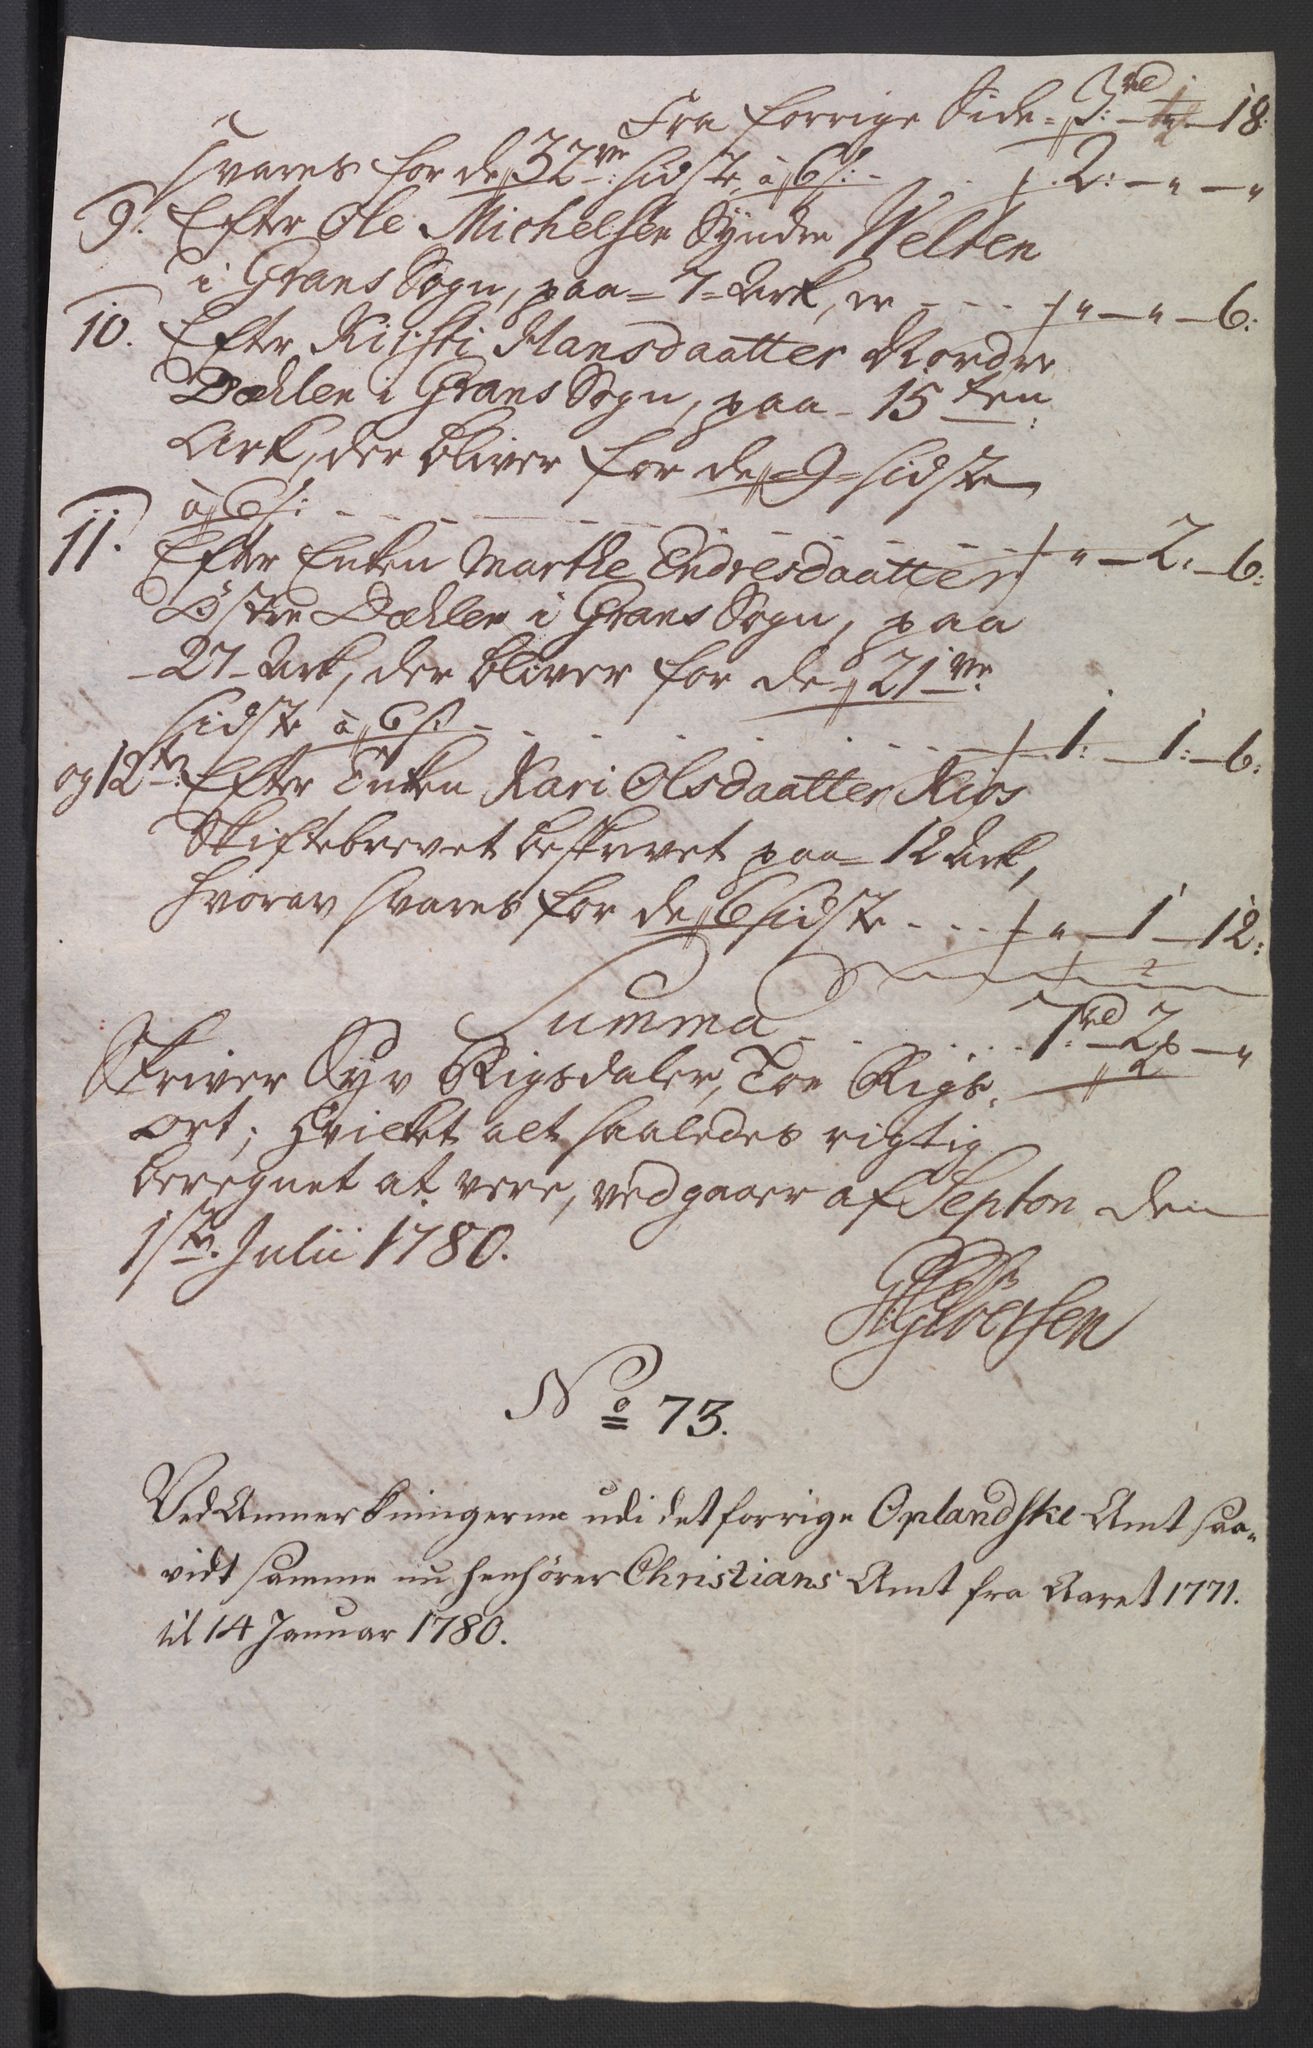 Fra forrige Side = 3 rd — 1/2 — 18:
svares for de 32 ve: sidste, à 6 s: - - 2: — " — "
9. Efter Ole Michelsen Syndre Welten
i Grans Sogn, paa = 7 = Ark, er - - - " — " — 6:
10. Efter Kirsti Hansdaatter Nordre
Dæhlen i Grans Sogn, paa - 15 ten
Ark, der bliver for de = 9 = sidste
à 6 s: - - - " — 2: — 6:
11. Efter Enken Marthe Endresdaatter
Østre Dæhlen i Grans Sogn, paa
- 27 - Ark, der bliver for de 21 ve
sidste à 6 s: - - - 1: — 1: — 6:
og 12te: Efter Enken Kari Olsdaatter Kios
Skiftebrevet beskrevet paa = 12 Ark,
hvorav svares for de 6 sidste - - - " — 1 — 12:
Summa - - - 7 rd: — 2 — "
Skriver Syv Rigsdaler, Toe Rigs-
ort; Hvilket alt saaledes rigtig
beregnet at være, vedgaaer af Septon den
1ste: Julii 1780.
Siversen
No 73.
Ved Anmerkningerne udi det forrige Oplandske Amt saa-
vidt samme nu henhører Christians Amt fra Aaret 1771.
til 14 Januar 1780.